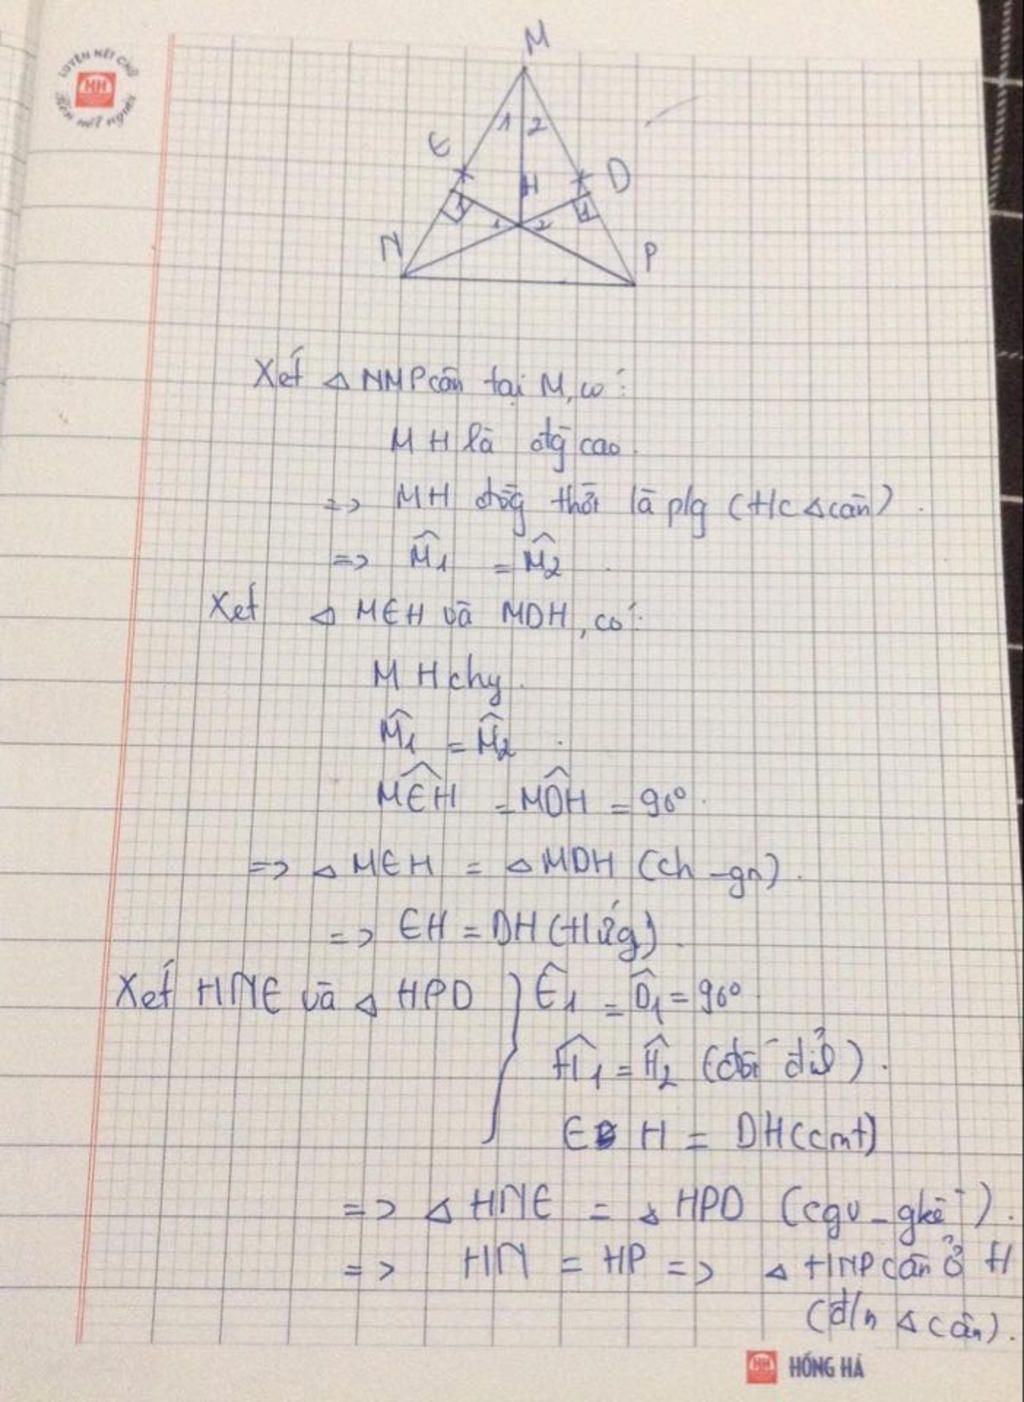 LUYỆN NÉT CHỮ
HH
Rèn nết người
M
1 2
E
H
D
1
1
1 2
N
P
Xét △ NMP cân tại M, có:
MH là đg cao.
=> MH đồg thời là p/g (t/c △ cân).
=> M̂1 = M̂2.
Xét △ MEH và MDH, có:
MH chg.
M̂1 = M̂2.
MÊH = MD̂H = 90°.
=> △ MEH = △ MDH (ch - gn).
=> EH = DH (t/ứg).
Xét HNE và △ HPD } Ê1 = D̂1 = 90°
Ĥ1 = Ĥ2 (đối đỉ).
EH = DH (cmt)
=> △ HNE = △ HPD (cgv - gkề).
=> HN = HP => △ HNP cân ở H
(đ/n △ cân).
HH HỒNG HÀ